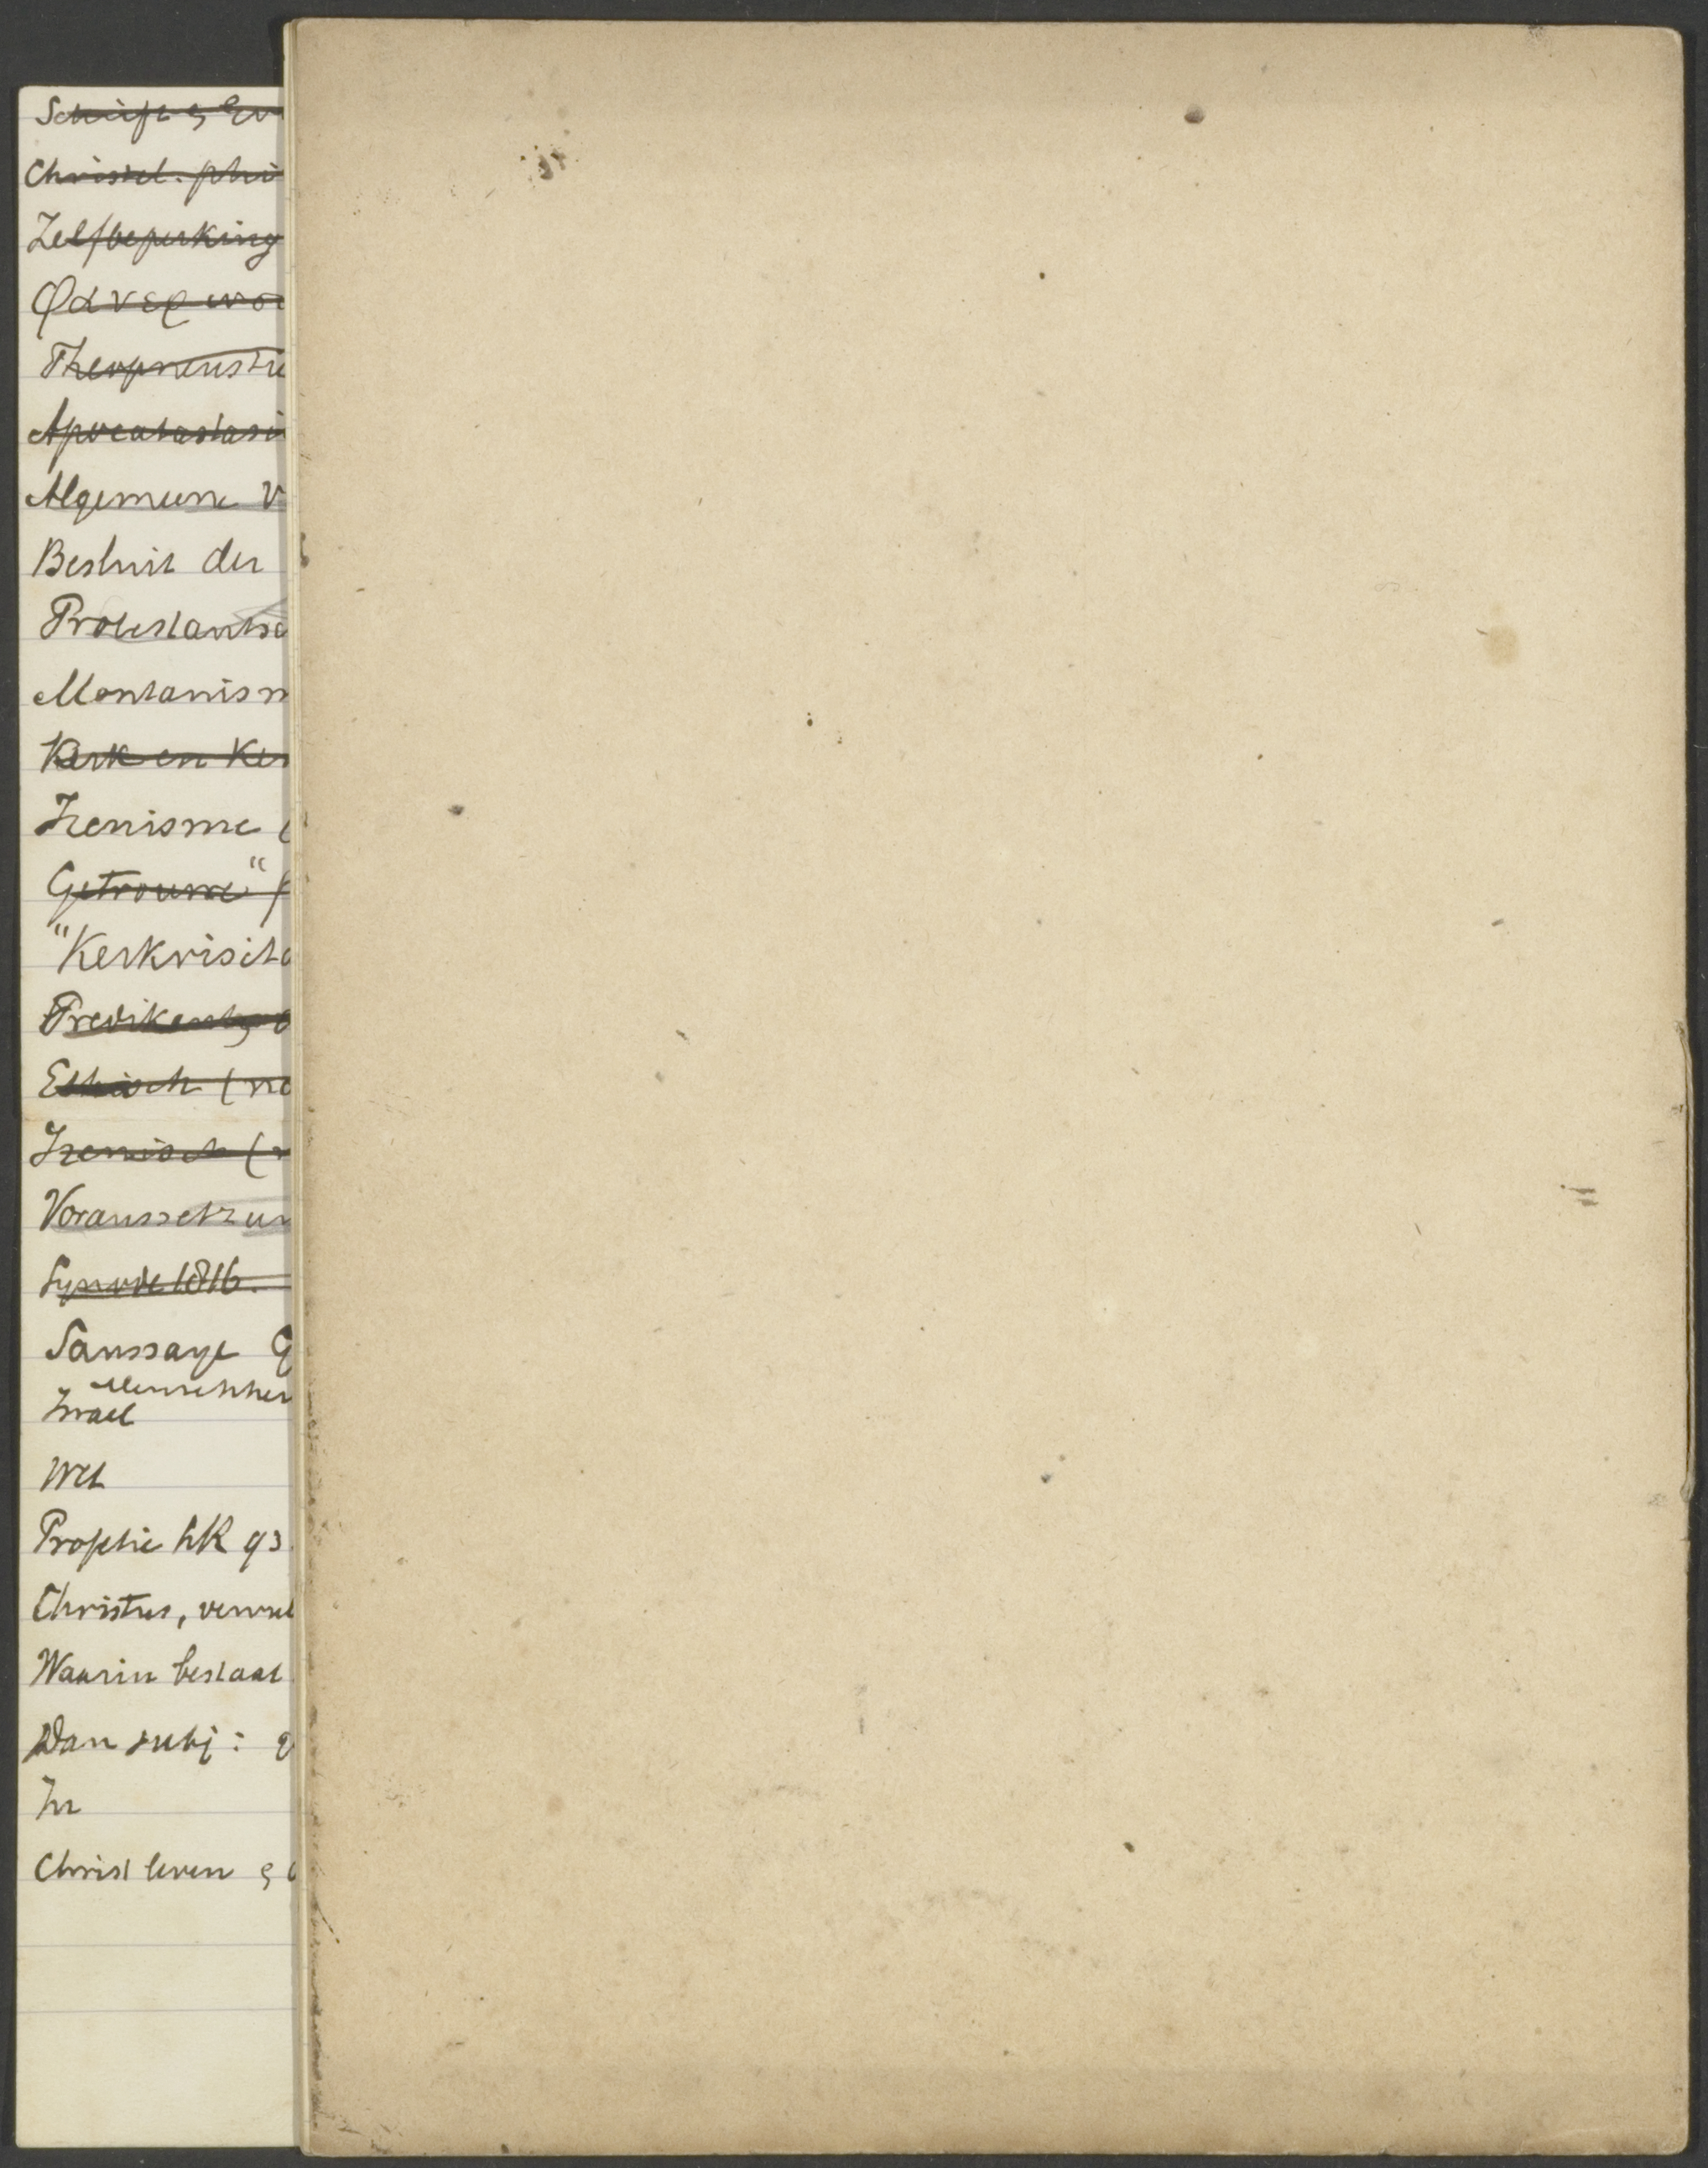 Schrift & Ev
Christel. phi
Zelfbeperking
Φανερωσι
Theopneustie
Apocatastasi
Algemeene V
Besluit der
Protestantse
Montanism
Kerk en Ker
Irenisme (
Getrouwe" (
"Kerkvisita
Predikants
Ethisch (no
Irenisch (
Voraussetzun
Synode 1816.
Saussaye G
Menschhei
Israel
Wet
Prophetie hK 93
Christus,
Waarin bestaat
Dan subj:
In
Christ leven &